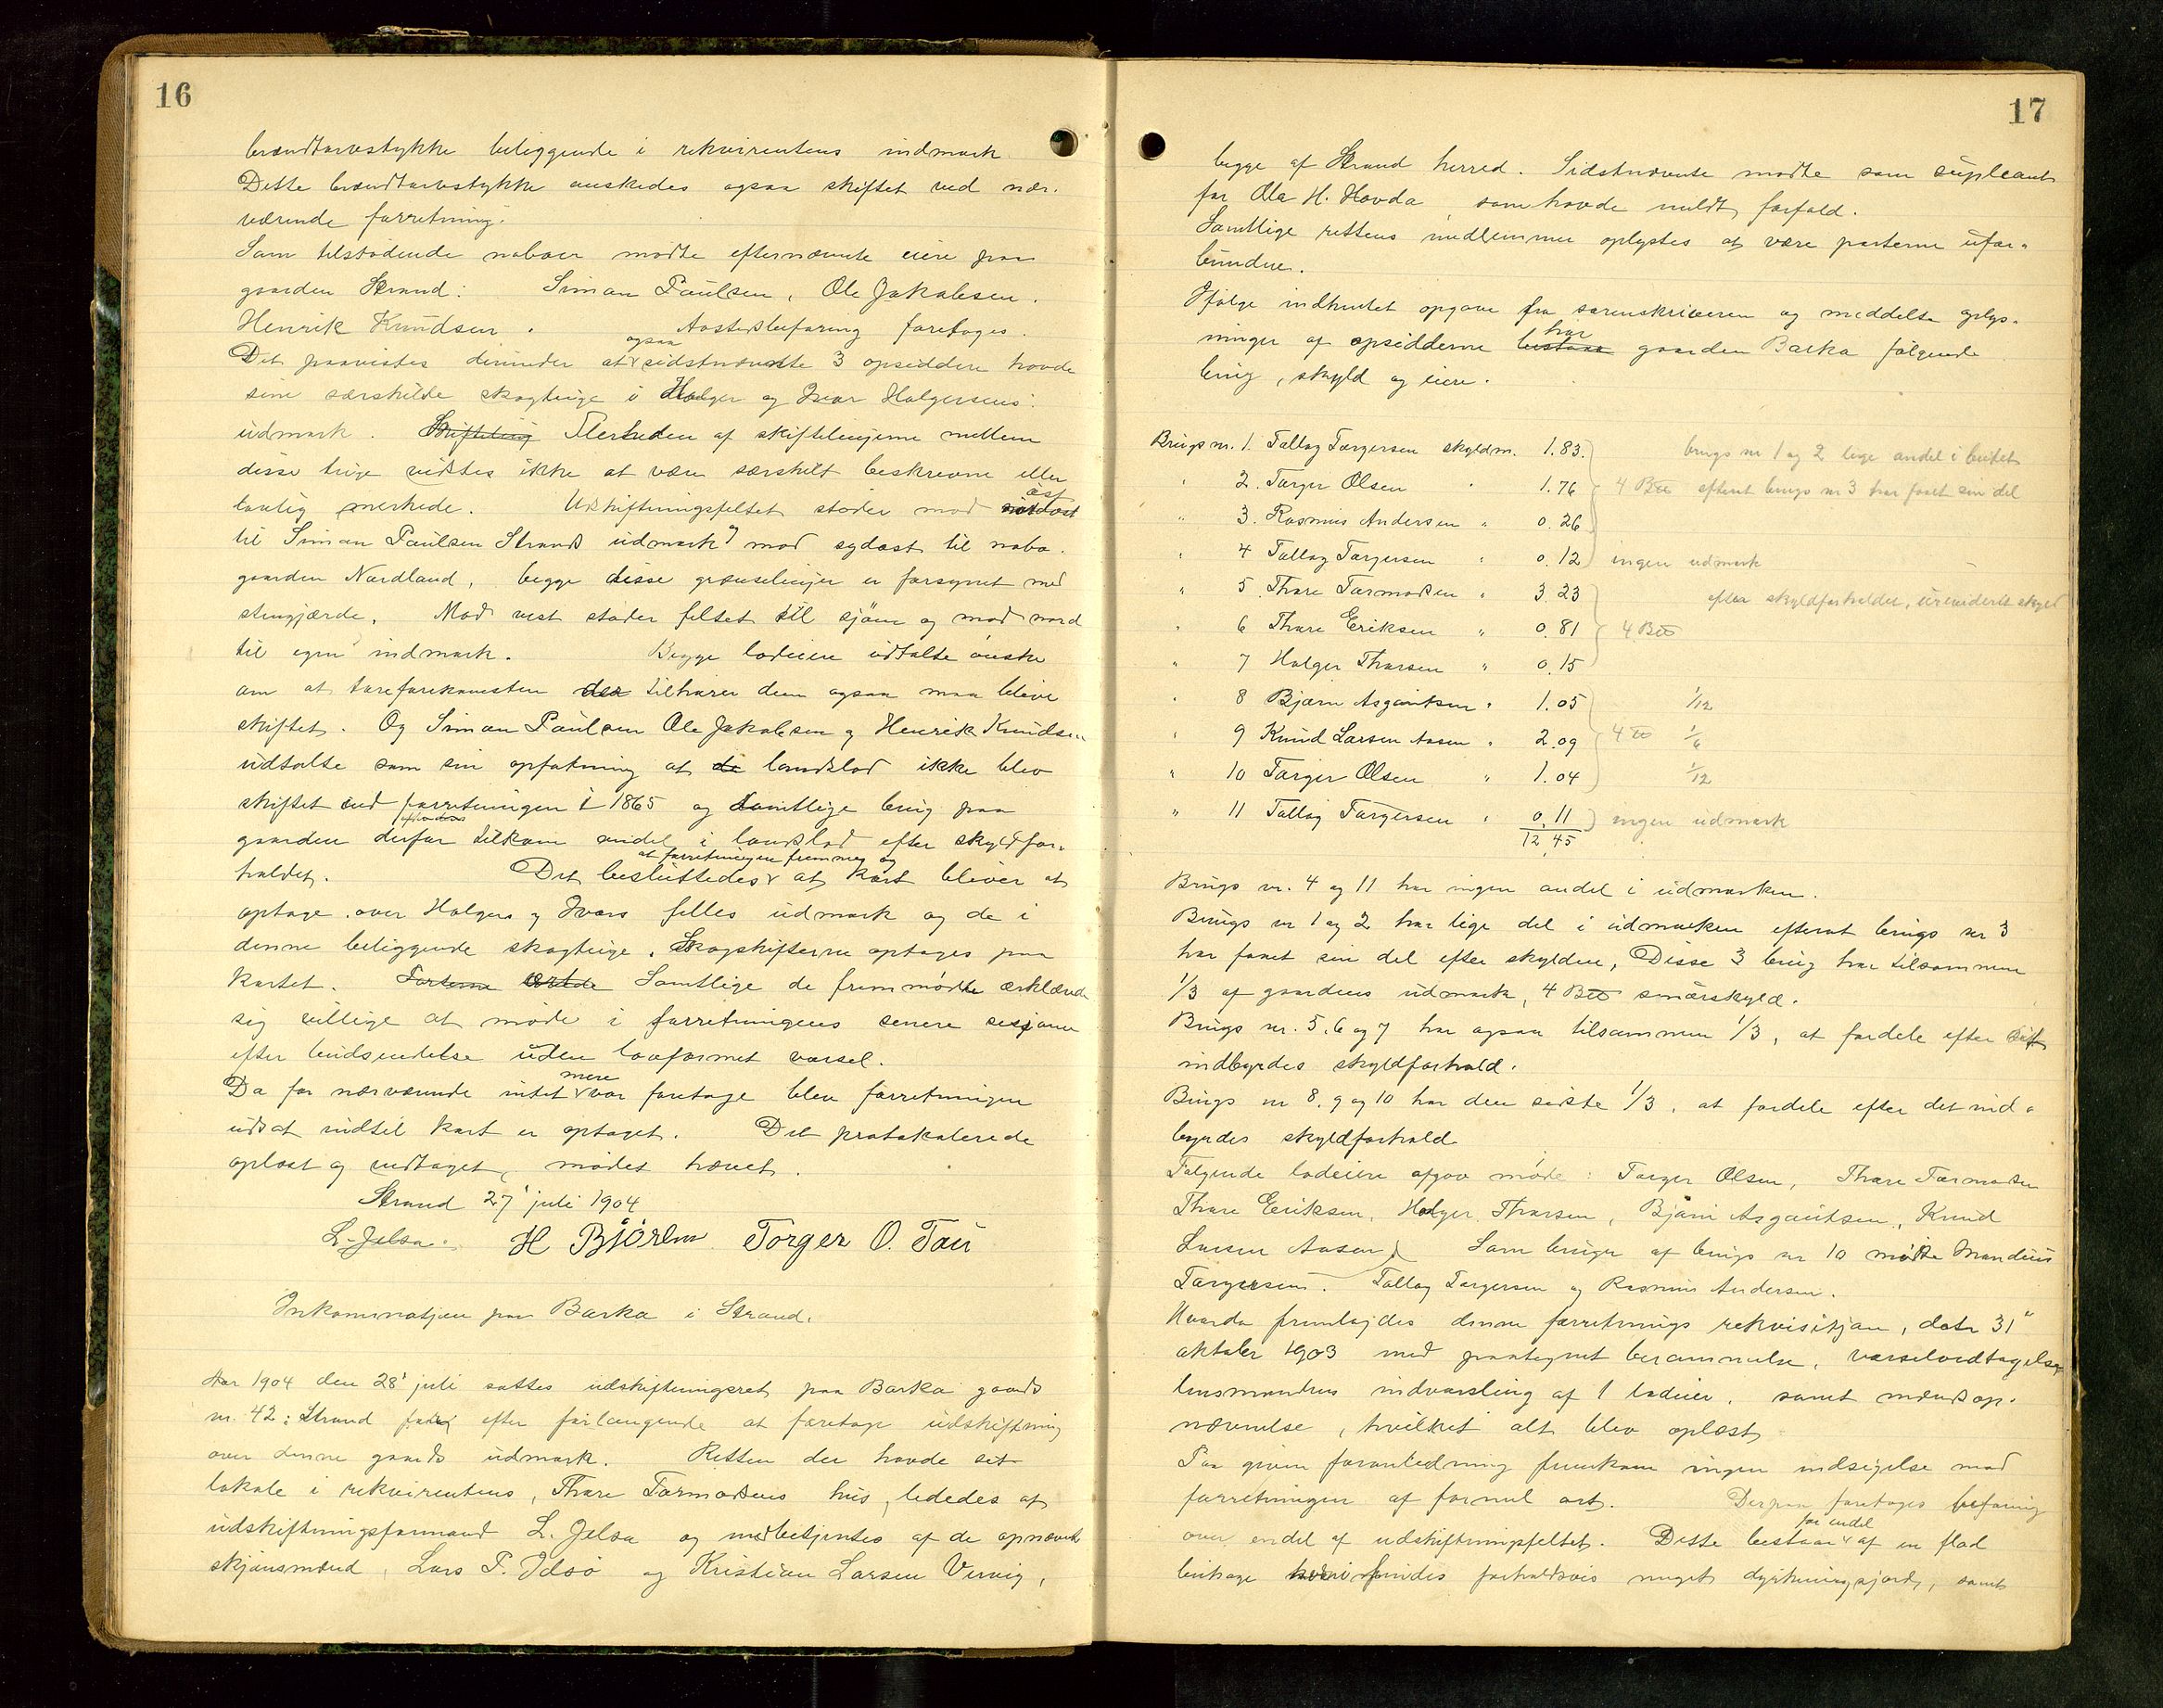 16
brændtorvstykke beliggende i rekvirentens indmark.
Dette brændtorvstykke ønskedes ogsaa skiftet ved nær-
værende forretning.
Som tilstødende naboer mødte efternævnte eiere paa
gaarden Strand: Simon Paulsen, Ole Jakobsen,
Henrik Knudsen. Aastedsbefaring foretoges.
ogsaa
Det paavistes derunder at sidstnævnte 3 opsiddere havde
sine særskilte skogteige i Holger og Ivar Holgersens
udmark. Skifteling Flerheden af skiftelinjerne mellem
disse teige vistes ikke at være særskilt beskrevne eller
øst
lovlig merkede. Udskiftningsfeltet støder mod nordost
til Simon Paulsen Strands udmark, mod sydøst til nabo-
gaarden Nordland, begge disse grænselinjer er forsynet med
stengjærde. Mod vest støder feltet til sjøen og mod nord
til egen indmark. Begge lodeiere udtalte ønske
om at tareforekomsten der tilhører dem ogsaa maa blive
skiftet. Og Simon Paulsen Ole Jakobsen og Henrik Knudsen
udtalte som sin opfatning at de landslod ikke blev
skiftet ved forretningen i 1865 og samtlige brug paa
gaarden derfor tilkom andel i landslod efter skyldfor-
at forretningen fremmes og
holdet. Det besluttedes at kart bliver at
optage over Holgers og Ivars felles udmark og de i
denne beliggende skogteige. Skogskifterne optages paa
kartet. Parterne Samtlige de fremmødte erklærede
sig villige at møde i forretningens senere sesjoner
efter budsendelse uden lovformet varsel.
mere
Da for nærværende intet var foretage blev forretningen
udsat indtil kart er optaget. Det protokolerede
oplæst og vedtaget, mødet hævet.
Strand 27' juli 1904
L. Jelsa. H Björhn Torger O. Tau
Inkaminatjon paa Barka i Strand.
Aar 1904 den 28' juli sattes udskiftningsret paa Barka gaards
nr. 42 i Strand efter forlangende at foretage udskiftning
over denne gaards udmark. Retten der havde sit
lokale i rekvirentens, Thore Tormodsens hus, lededes af
udskiftningsformand L. Jelsa og medbetjentes af de opnævnte
skjønsmænd, Lars P. Idsø og Kristian Larsen Vervig,
17
begge af Strand herred. Sidstnævnte mødte som supleant
for Ola H. Hovda, som havde meldt forfald.
Samtlige rettens medlemmer oplystes at være parterne ufor-
bundne.
Ifølge indhentet opgave fra sorenskriveren og meddelte oplys-
har
ninger af opsidderne bestaar gaarden Barka følgende
brug, skyld og eiere.
Brugs nr. 1. Tallag Torgersen skyldm. 1.83. brugs nr 1 og 2 lige andel i beitet
" 2. Torger Olsen " 1.76 4 B efterat brugs nr 3 har faaet sin del
" 3. Rasmus Andersen " 0.26
" 4 Tallag Torgersen " 0.12 ingen udmark
" 5. Thore Tormodsen " 3.23 efter skyldforholdet, urevideret skyld
" 6 Thore Eriksen " 0.81 4 B
" 7 Holger Thorsen " 0.15
" 8 Bjørn Asgautsen " 1.05 1/12
" 9 Knud Larsen Aasen " 2.09 4 1/6
" 10 Torger Olsen " 1.04 1/12
" 11 Tallag Torgersen " 0.11 ingen udmark
12,45
Brugs nr. 4 og 11 har ingen andel i udmarken.
Brugs nr 1 og 2 har lige del i udmarken efterat brugs nr 3
har faaet sin del efter skylden, Disse 3 brug har tilsammen
1/3 af gaardens udmark, 4 B smørskyld.
Brugs nr. 5, 6 og 7 har ogsaa tilsammen 1/3, at fordele efter sit
indbyrdes skyldforhold.
Brugs nr 8. 9 og 10 har den sidste 1/3, at fordele efter det ind-
byrdes skyldforhold
Følgende lodeiere afgav møde: Torger Olsen, Thore Tormodsen
Thore Eriksen, Holger Thorsen, Bjørn Asgautsen, Knud
Larsen Aasen, Som bruger af brugs nr 10 mødte Mandius
Torgersen. Tallag Torgersen og Rasmus Andersen.
Hvorda fremlagdes denne forretnings rekvisisjon, datr 31"
oktober 1903 med paategnet berammelse, varselvedtagelser
lensmandens indvarsling af 1 lodeier, samt mændsop-
nævnelse, hvilket alt blev oplæst
Paa given foranledning fremkom ingen indsigelse mod
forretningen af formel art. Derpaa foretoges befaring
for endel
over endel af udskiftningsfeltet. Dette bestaar af en flad
beitehage hvori findes forholdsvis meget dyrkningsjord, samt